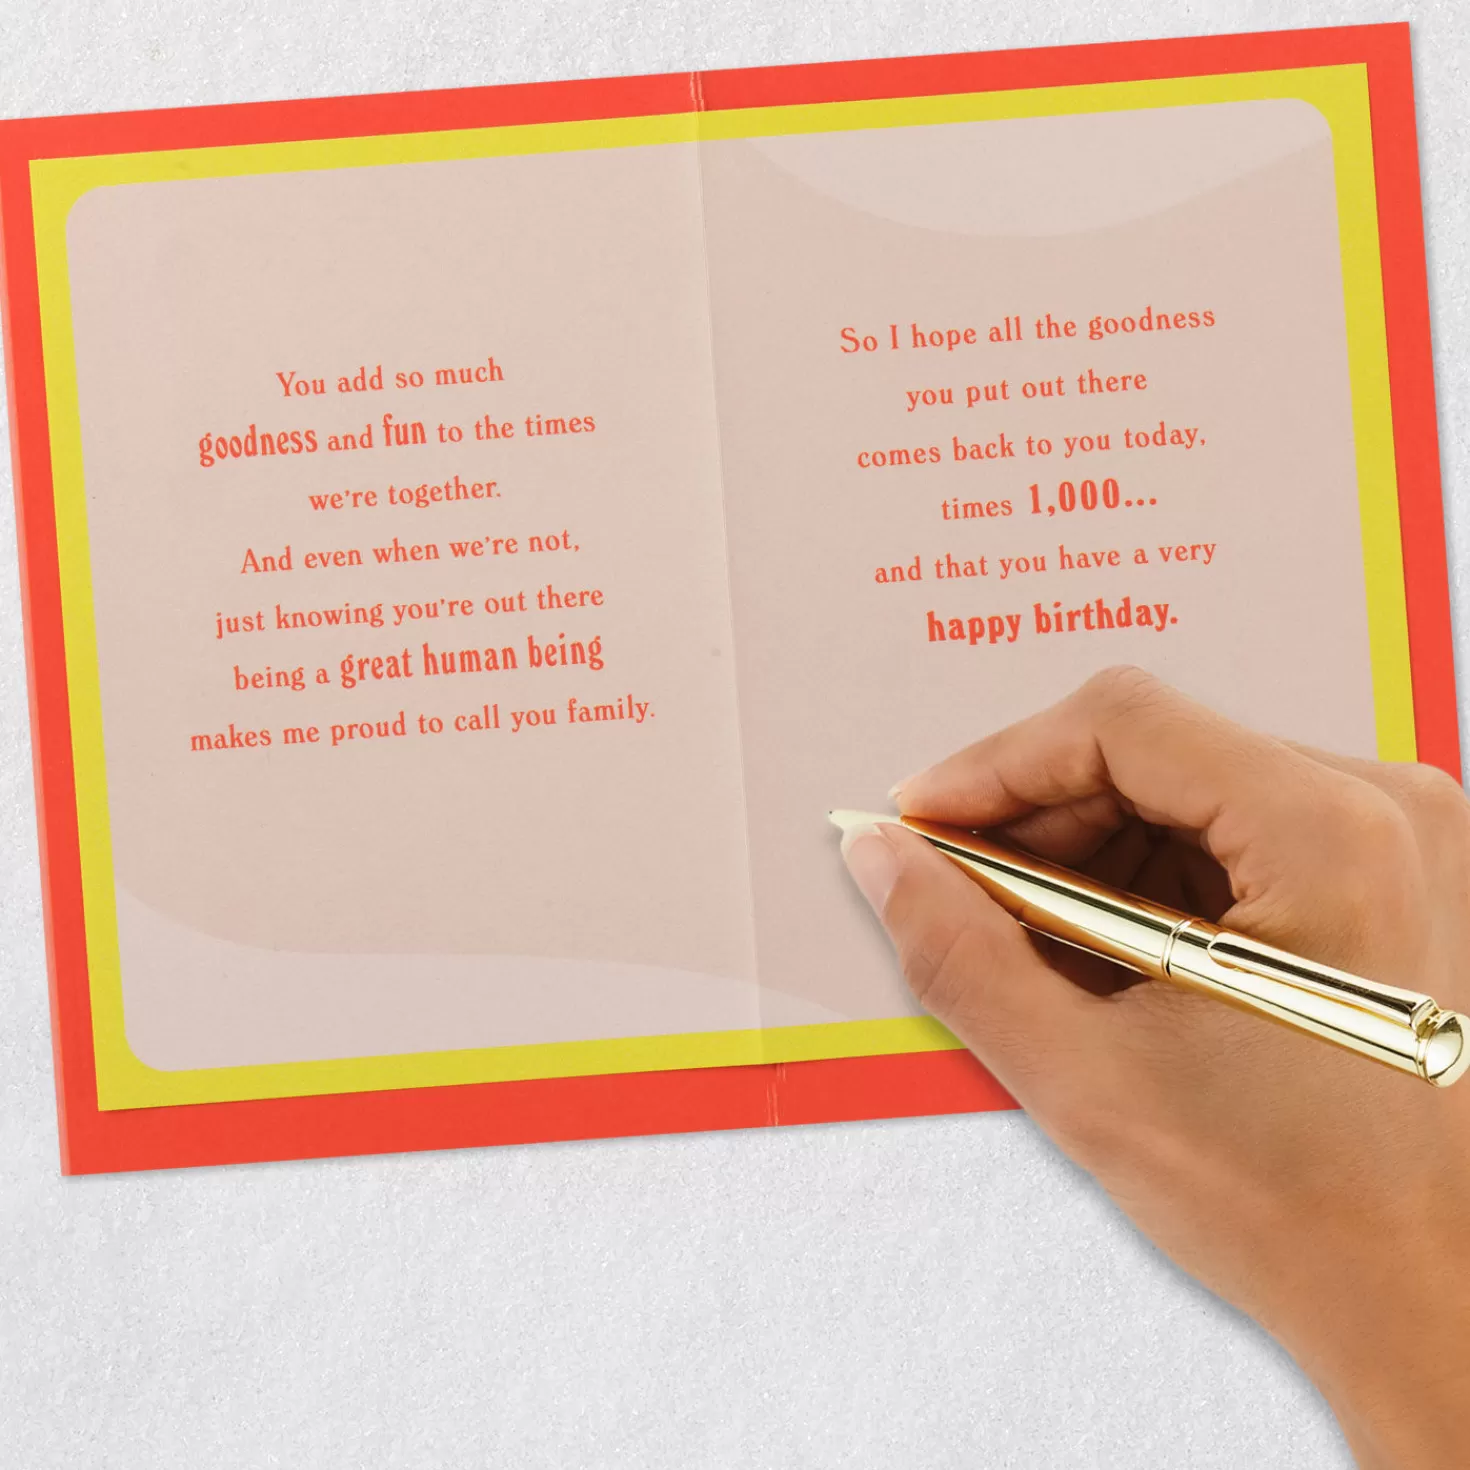 You add so much
goodness and fun to the times
we're together.
And even when we're not,
just knowing you're out there
being a great human being
makes me proud to call you family.
So I hope all the goodness
you put out there
comes back to you today,
times 1,000...
and that you have a very
happy birthday.